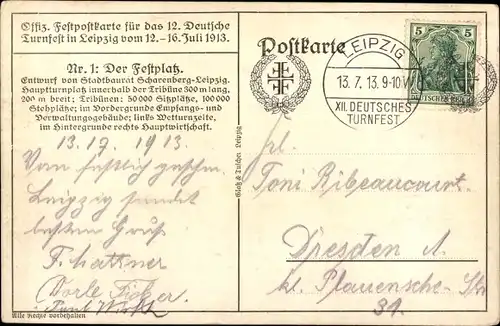 Offiz. Festpostkarte für das 12. Deutsche
Turnfest in Leipzig vom 12.-16. Juli 1913.
Nr. 1: Der Festplatz.
Entwurf von Stadtbaurat Scharenberg-Leipzig.
Hauptturnplatz innerhalb der Tribüne 300 m lang,
200 m breit; Tribünen: 50000 Sitzplätze, 100000
Stehplätze; im Vordergrunde Empfangs- und
Verwaltungsgebäude; links Wetturnzeite,
im Hintergrunde rechts Hauptwirtschaft.
13.7.1913.
Vom festlich geschm.
Leipzig sendet
besten Gruß
F. Hattner
Dorle
Alle Rechte vorbehalten
Postkarte
LEIPZIG
13. 7. 13. 9-10.V
XII. DEUTSCHES
TURNFEST
5 5
DEUTSCHES REICH
Toni Ribeaucourt
Dresden A.
kl. Plauensche-Str
39.